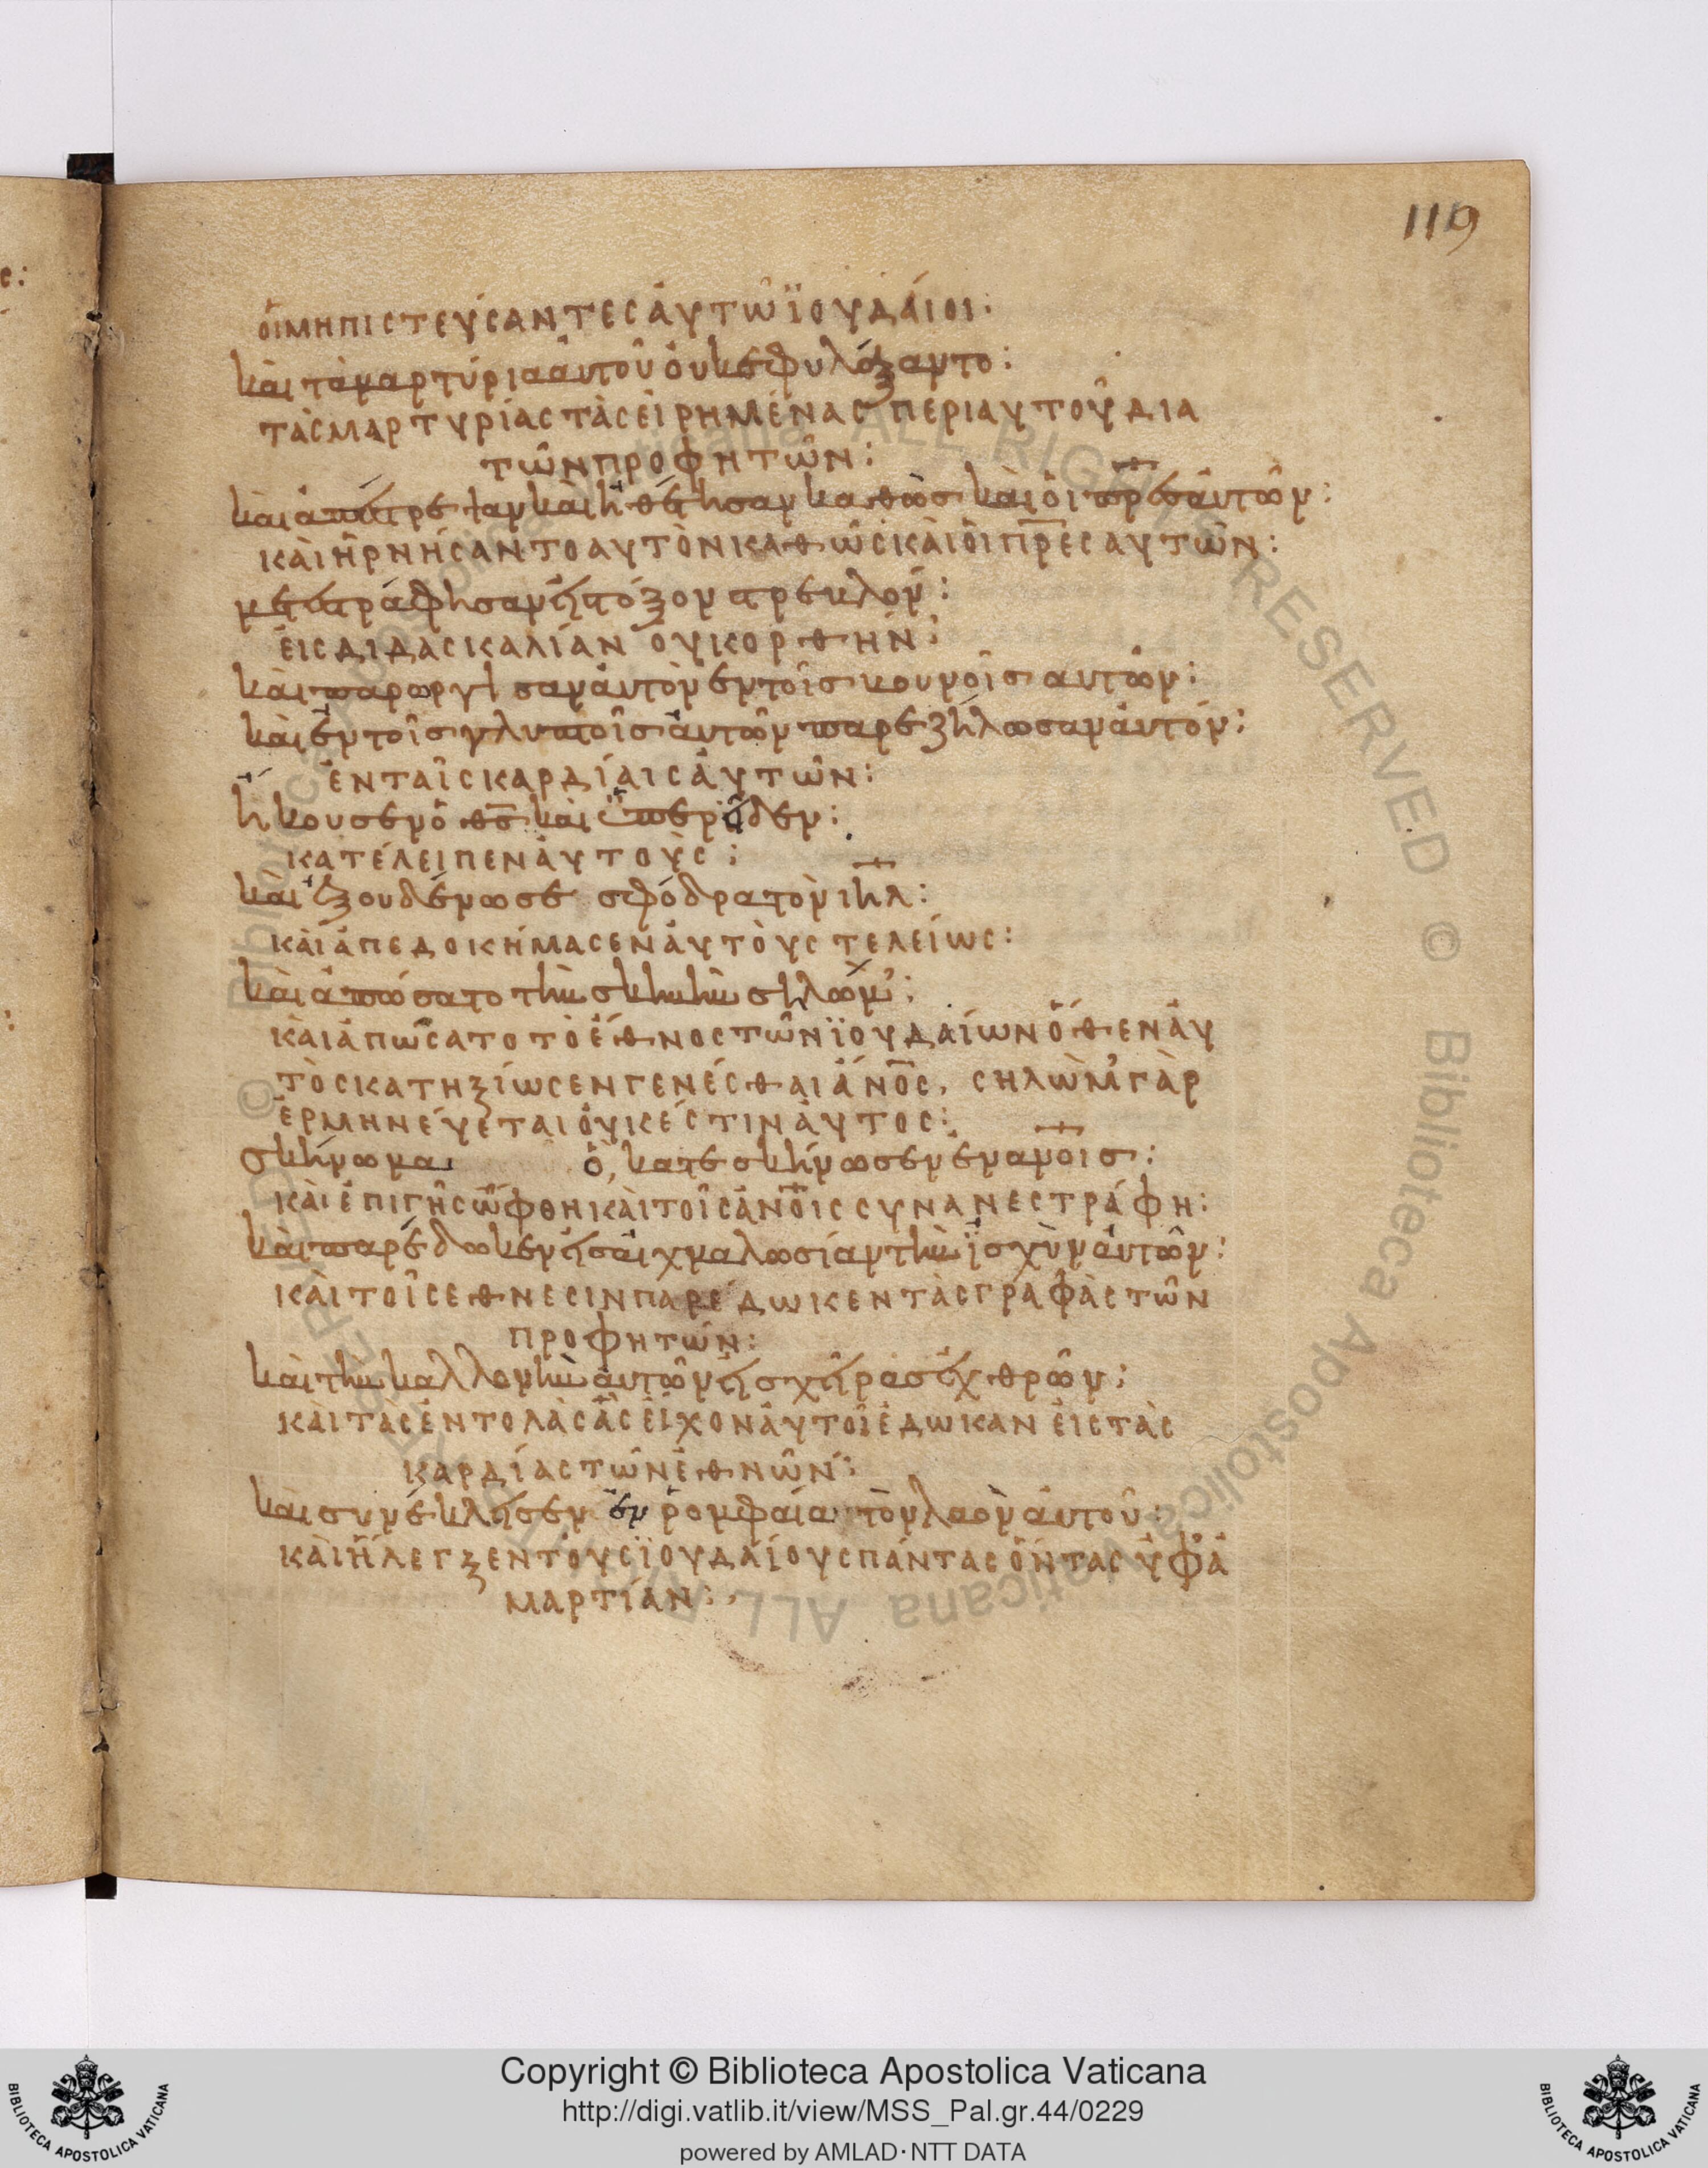 119
ὁι μὴ πιστεύσαντες ἀυτῶ ϊουδάιοι:
κὰι τὰ μαρτύρια ἀυτοῦ ὀυκ ἐφυλάξαντο:
τὰς μαρτυρίας τὰς ἐιρημένας περι αυτοῦ δια
τῶν προφητῶν:
κὰι ἀπέστρεψαν κὰι ἠθέτησαν καθὼσ κὰι ὁι πρ̅εσ ἀυτῶν:
κὰι ἠρνήσαντο αυτὸν καθὼς κὰι ὁι πρ̅ες αυτῶν:
μετεστράφησαν ἐισ τόξον στρεβλον:
ἐις διδασκαλίαν ὀυκ ορθὴν:
κὰι παρωργισαν ἀυτὸν ἐν τοῖσ βουνοῖσ αυτῶν:
κὰι ἐν τοῖσ γλυπτοῖσ ἀυτῶν παρεζήλωσαν ἀυτόν:
ἐν ταῖς καρδίαις ἀυτῶν:
ἤκουσεν ὁ θ̅σ κὰι ὑπερεῖδεν:
κατέλειπεν ἀυτοὺς:
κὰι ἐξουδένωσε σφόδρα τὸν ιη̅λ:
κὰι ἀπεδοκήμασεν ἀυτὸυς τελείως:
κὰι ἀπώσατο τὴν σκηνὴν σηλώμ:
κὰι ἀπώσατο τὸ ἔθνος τῶν ϊουδαίων ὅθεν ἀυ
τὸς κατηξίωσεν γενέσθαι ἄνο̅ς, σηλὼμ γὰρ
ἑρμηνέυεται ὀυκ έστιν ἀυτος:
σκήνωμα ὃ, κατεσκήνωσεν ἐν ανοισ:
κὰι ἐπι γῆς ὤφθη κὰι τοῖς ἀνο̅ις συνανεστράφη:
κὰι παρέδωκεν ἐισ ἀιχμαλωσίαν τὴν ϊσχὺν ἀυτῶν:
κὰι τοῖς εθνεσιν παρέδωκεν τὰς γραφὰς τῶν
προφητών:
κὰι τὴν καλλονὴν ἀυτῶν ἐισ χεῖρασ ἐχθρῶν:
κὰι τὰς ἐντολὰς ἃς ἐίχον ἀυτοὶ ἔδωκαν ἐις τὰς
καρδίας τῶν ἐθνῶν:
κὰι συνέκλεισεν ἐν ρομφαία τὸν λαὸν ἀυτοῦ:
κὰι ἤλεγξεν τὀυς ϊουδάιους πάντας ὄντας ὑφ ἁ
μαρτίαν:
Copyright © Biblioteca Apostolica Vaticana
http://digi.vatlib.it/view/MSS_Pal.gr.44/0229
powered by AMLAD·NTT DATA
BIBLIOTECA APOSTOLICA VATICANA
BIBLIOTECA APOSTOLICA VATICANA